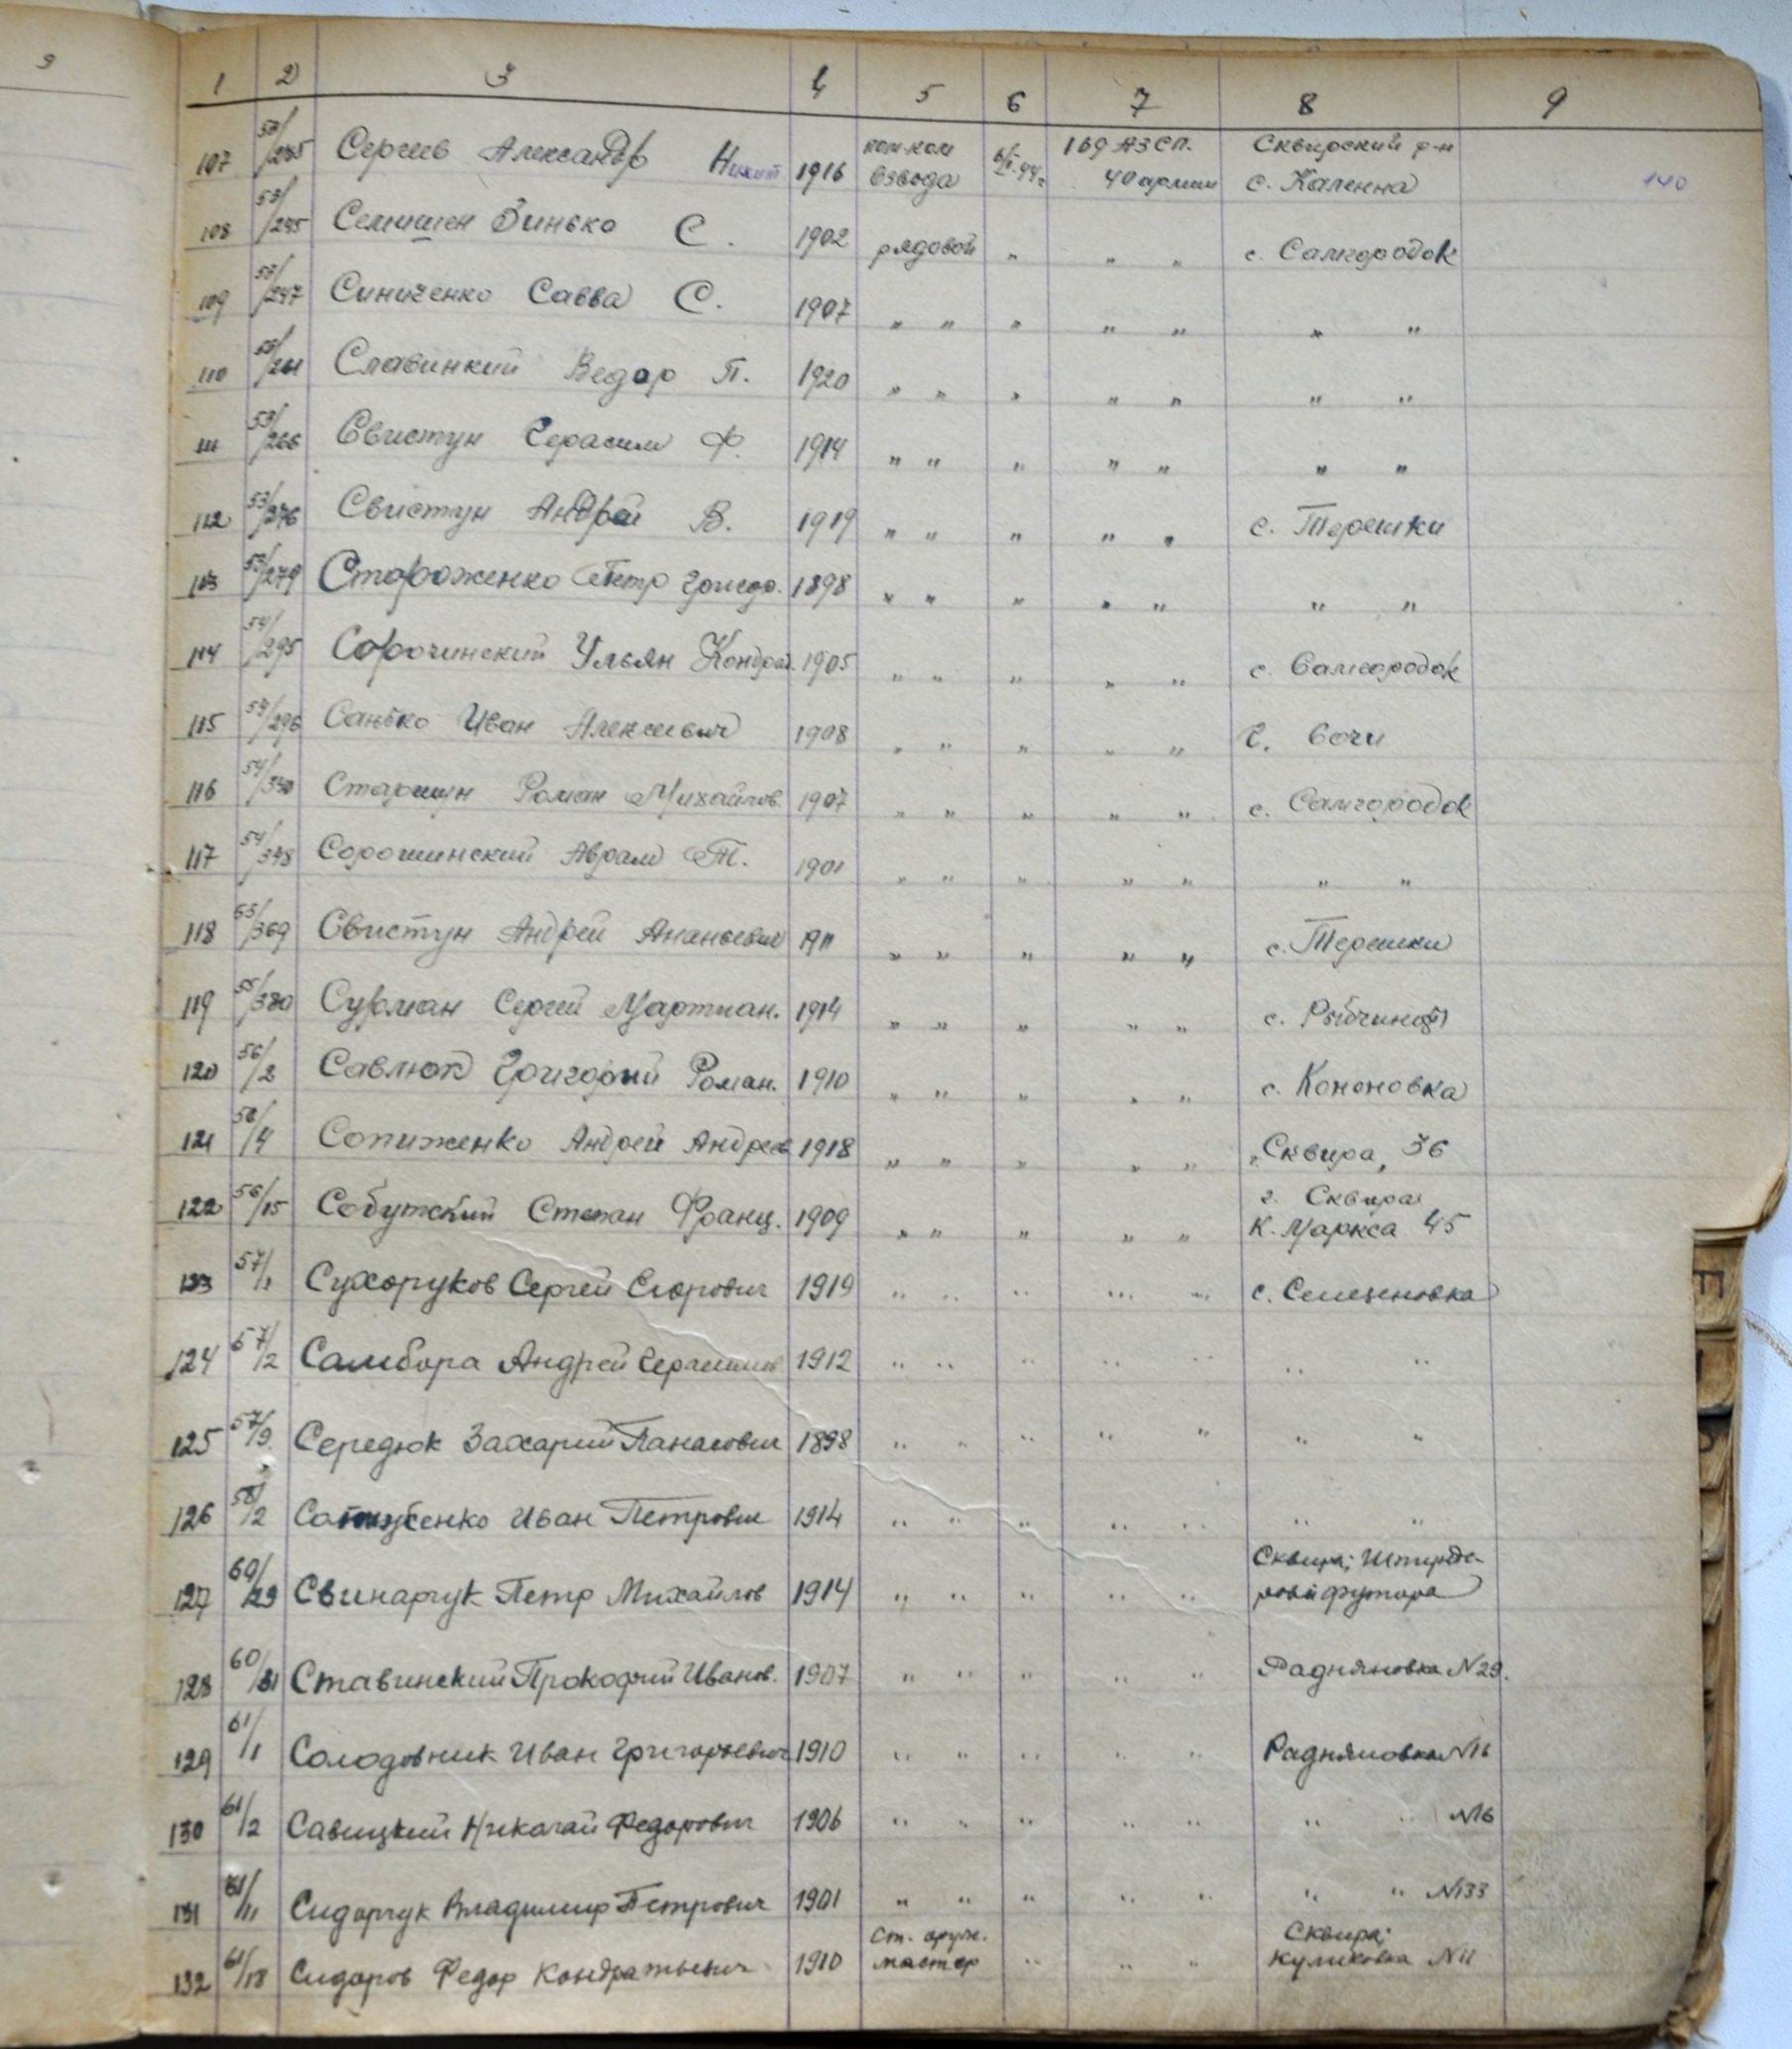 1 2 3 4 5 6 7 8 9
107 53/245 Сергеев Александр Никит 1916 пом.ком взвода 169 АЗСП. 40 армии Сквирский р-н с. Каленна 140
108 53/245 Семишен Зинько С. 1902 рядовой " " " с. Самгородок
109 53/247 Синиченко Савва С. 1907 " " " " " " "
110 53/261 Славинкий Ведор П. 1920 " " " " " " "
111 53/266 Свистун Герасим Ф. 1914 " " " " " " "
112 53/276 Свистун Андрей В. 1919 " " " " " с. Терешки
113 53/279 Стороженко Петр Григор. 1898 " " " " " " "
114 54/295 Сорочинский Ульян Кондрат. 1905 " " " " " с. Самгородок
115 54/296 Санько Иван Алексеевич 1908 " " " " " с.
116 54/330 Старшин Роман Михайлов. 1907 " " " " " с. Самгородок
117 54/348 Сорошинский Аврам Т. 1901 " " " " " " "
118 55/369 Свистун Андрей Ананьевич 1911 " " " " " с. Терешки
119 55/380 Сурман Сергей Мартиан. 1914 " " " " " с.
120 56/2 Савлюк Григорий Роман. 1910 " " " " " с. Кононовка
121 56/4 Сопиженко Андрей Андреев 1918 " " " " " г. Сквира, 36
122 56/15 Собутский Степан Франц. 1909 " " " " " г. Сквира К. Маркса 45
123 57/1 Сухоруков Сергей Егорович 1919 " " " " " с. Селезеновка
124 57/2 Самбора Андрей Герасимов 1912 " " " " " " "
125 57/9 Середюк Захарий Панасович 1898 " " " " " " "
126 58/2 Иван Петрович 1914 " " " " " " "
127 60/29 Свинарчук Петр Михайлов 1914 " " " " " Сквира;
128 60/31 Ставинский Прокофий Иванов. 1907 " " " " " Радняновка N29.
129 61/1 Солодовник Иван Григорьевич 1910 " " " " " Радняновка N16
130 61/2 Савицкий Николай Федорович 1906 " " " " " " " N16
131 61/11 Сидорчук Владимир Петрович 1901 " " " " " " " N133
132 61/18 Сидоров Федор Кондратьевич 1910 Ст. оруж. мастер " " " Сквира; Куликовка N11